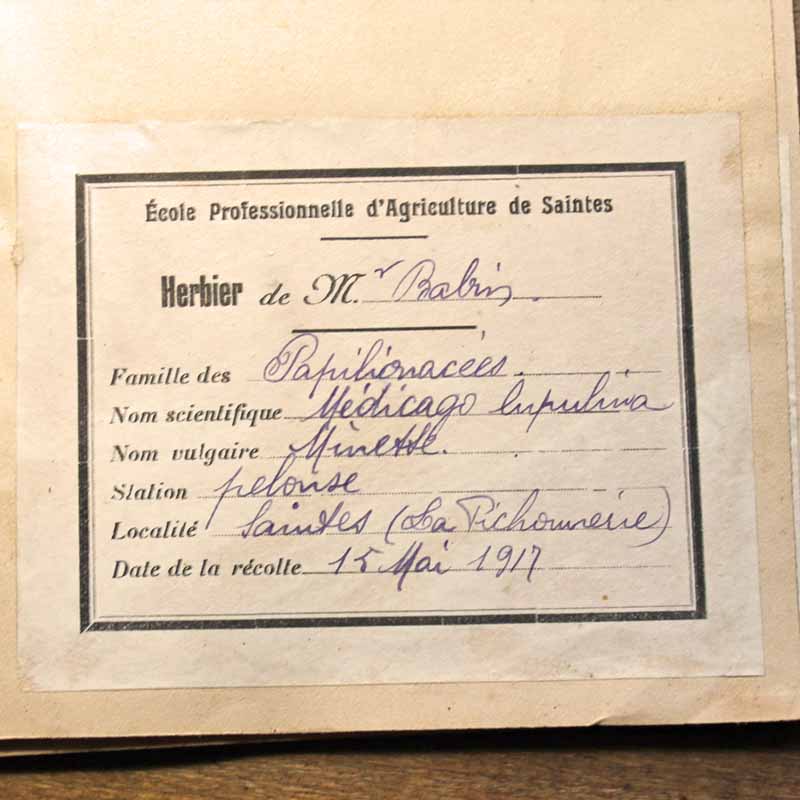 École Professionnelle d'Agriculture de Saintes
Herbier de M.r Babin.
Famille des Papilionacées.
Nom scientifique Médicago lupulina
Nom vulgaire Minette.
Station pelouse
Localité Saintes (La Pichonnerie)
Date de la récolte 15 Mai 1917